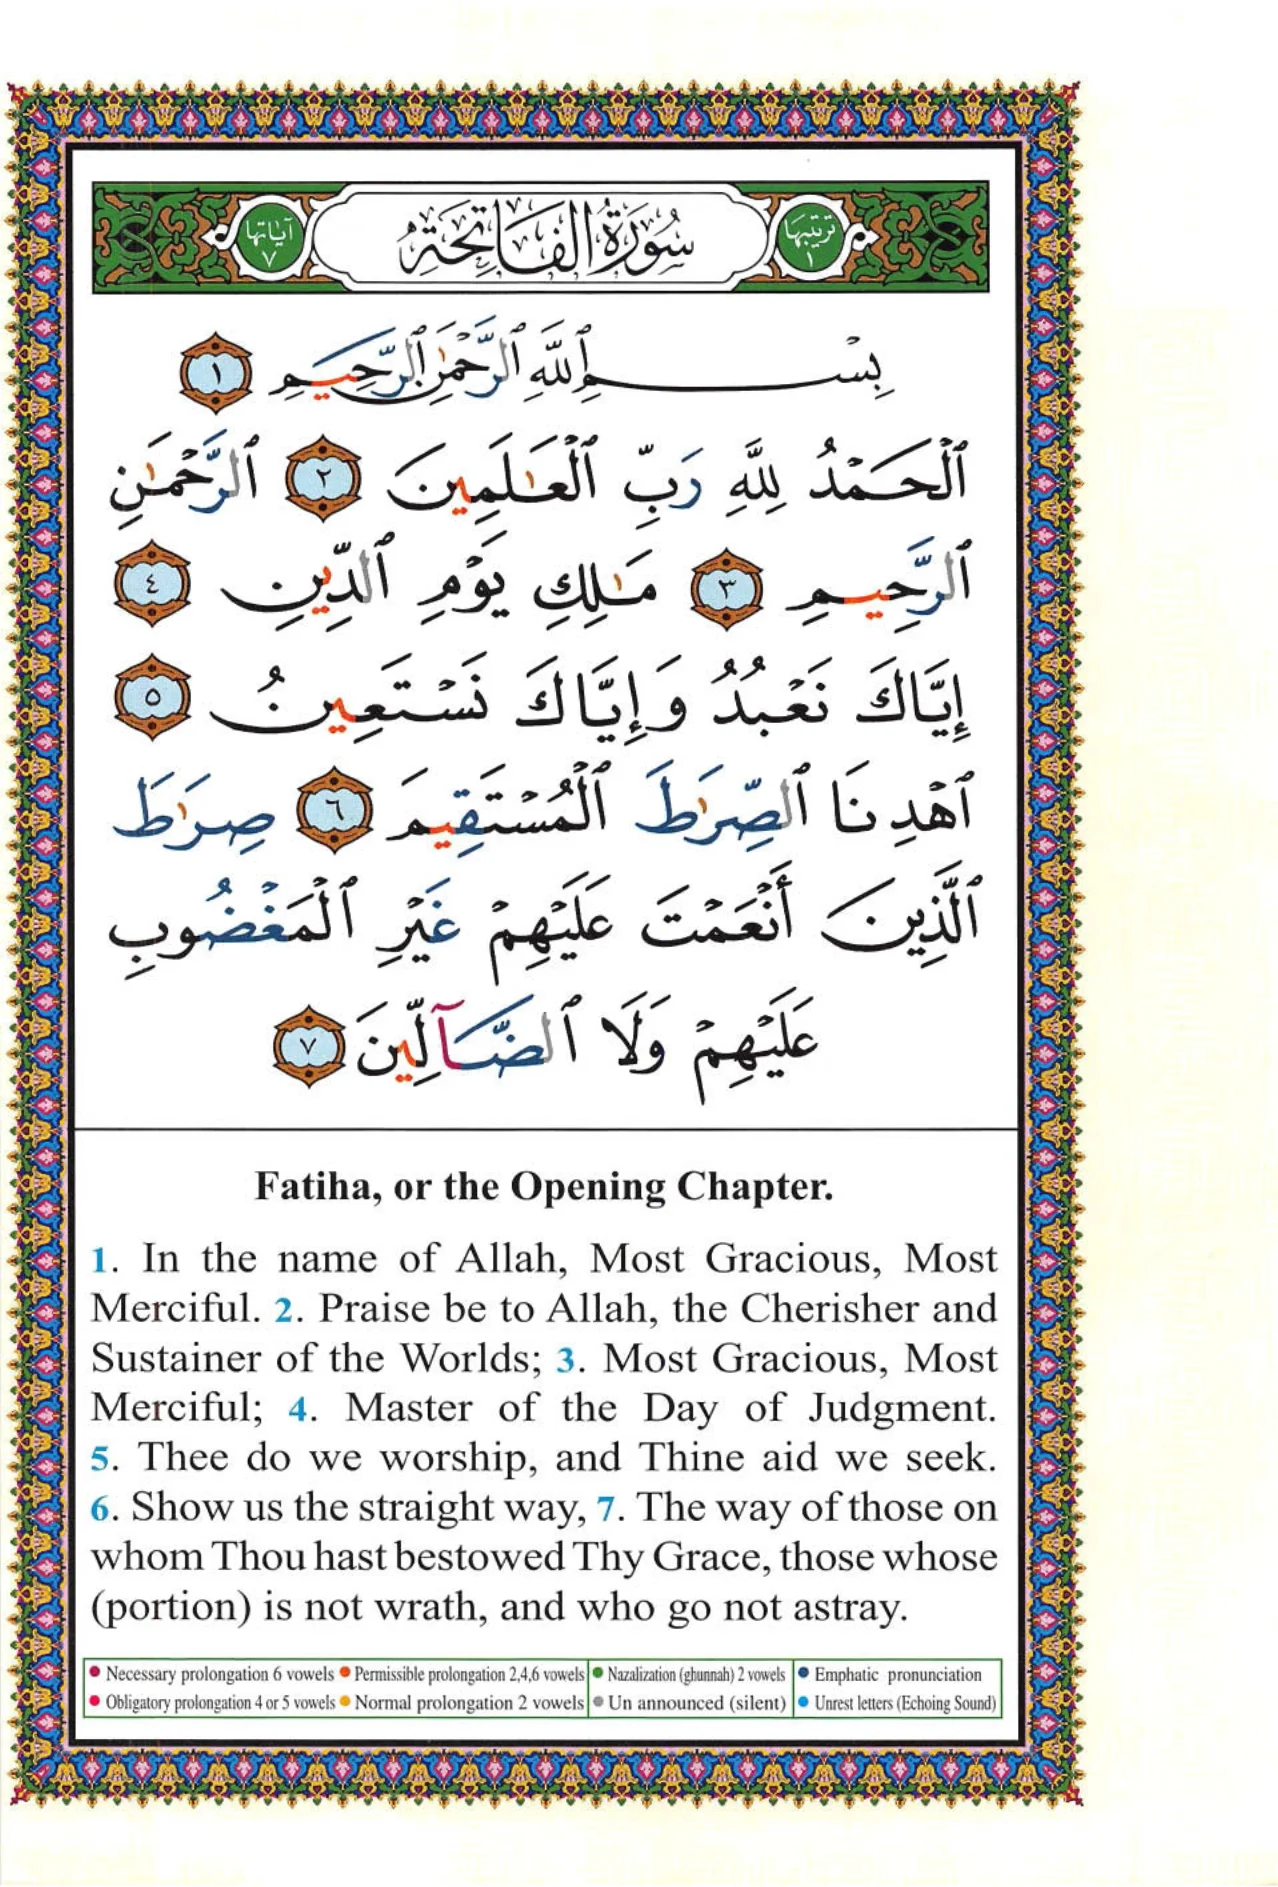 ترتيبها ١
سُورَةُ الفَاتِحَةِ
آياتها ٧
بِسْمِ ٱللَّهِ ٱلرَّحْمَٰنِ ٱلرَّحِيمِ ١
ٱلْحَمْدُ لِلَّهِ رَبِّ ٱلْعَٰلَمِينَ ٢ ٱلرَّحْمَٰنِ
ٱلرَّحِيمِ ٣ مَٰلِكِ يَوْمِ ٱلدِّينِ ٤
إِيَّاكَ نَعْبُدُ وَإِيَّاكَ نَسْتَعِينُ ٥
ٱهْدِنَا ٱلصِّرَٰطَ ٱلْمُسْتَقِيمَ ٦ صِرَٰطَ
ٱلَّذِينَ أَنْعَمْتَ عَلَيْهِمْ غَيْرِ ٱلْمَغْضُوبِ
عَلَيْهِمْ وَلَا ٱلضَّآلِّينَ ٧
Fatiha, or the Opening Chapter.
1. In the name of Allah, Most Gracious, Most
Merciful. 2. Praise be to Allah, the Cherisher and
Sustainer of the Worlds; 3. Most Gracious, Most
Merciful; 4. Master of the Day of Judgment.
5. Thee do we worship, and Thine aid we seek.
6. Show us the straight way, 7. The way of those on
whom Thou hast bestowed Thy Grace, those whose
(portion) is not wrath, and who go not astray.
Necessary prolongation 6 vowels Permissible prolongation 2,4,6 vowels Nazalization (ghunnah) 2 vowels Emphatic pronunciation
Obligatory prolongation 4 or 5 vowels Normal prolongation 2 vowels Un announced (silent) Unrest letters (Echoing Sound)